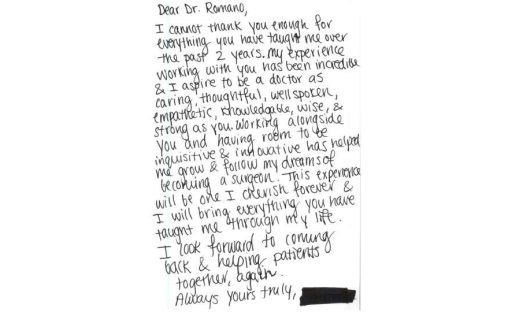 Dear Dr. Romano,
I cannot thank you enough for
everything you have taught me over
the past 2 years. my experience
working with you has been incredible
& I aspire to be a doctor as
caring, thoughtful, well spoken,
empathetic, knowledgable, wise, &
strong as you. Working alongside
you and having room to be
inquisitive & innovative has helped
me grow & follow my dreams of
becoming a surgeon. This experience
will be one I cherish forever &
I will bring everything you have
taught me through my life.
I look forward to coming
back & helping patients
together, again.
Always yours truly,